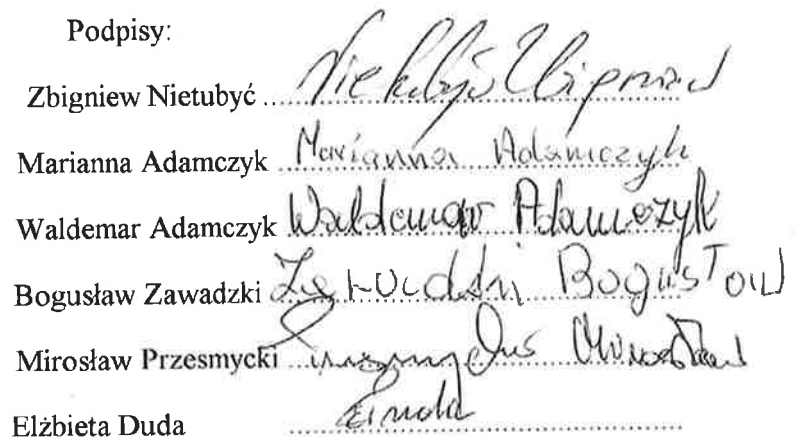 Podpisy:
Zbigniew Nietubyć ........ Nietubyć Zbigniew
Marianna Adamczyk ........ Marianna Adamczyk
Waldemar Adamczyk Waldemar Adamczyk
Bogusław Zawadzki Zawadzki Bogusław
Mirosław Przesmycki ........ Przesmycki Mirosław
Elżbieta Duda ........ EDuda